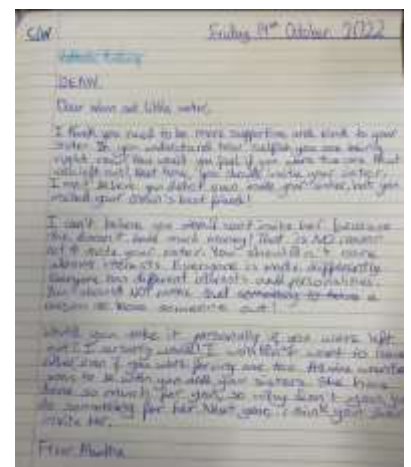 C/W Friday 14th October 2022
DEAW
Dear mean out little sister,
I think you need to be more supportive and kind to your
sister. Do you understand how selfish you are being
right now? How would you feel if you were the one that
was left out? Next time, you should invite your sister.
I can't believe you didn't even invite your sister, but you
invited your best friend!
I can't believe you won't invite her because
she doesn't have much money! That is NO reason
not to invite your sister. You shouldn't care
about interests. Everyone is made differently
Everyone has different interests and personalities.
You should NOT make that something to have a
reason to leave someone out!
Would you take it personally if you were left
out? I certainly would! I wouldn't want to
even if you
want to be with you and your sisters. She
done so much for you, so why don't you
do something for her. Next year, I think you should
invite her.
From